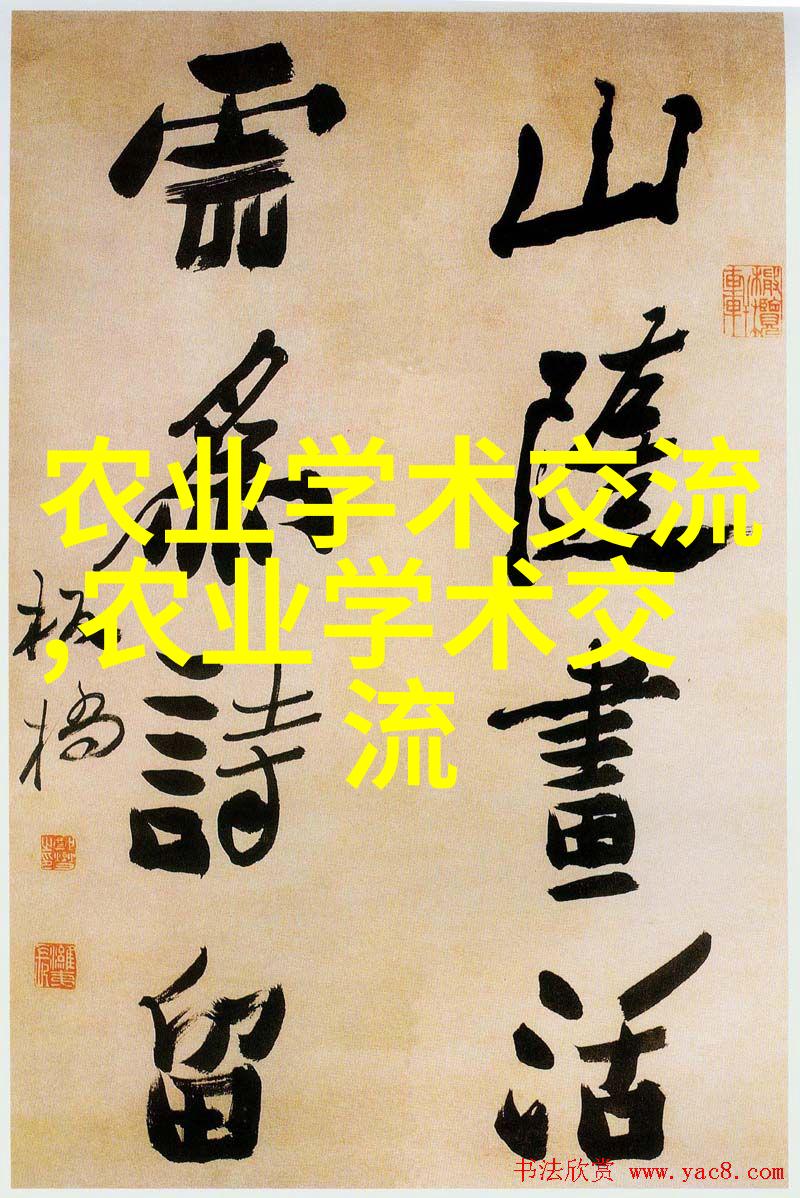 山隨畫活
雲爲詩留
板橋
农业学术交流
,农业学术交
流
书法欣赏 www.yac8.com